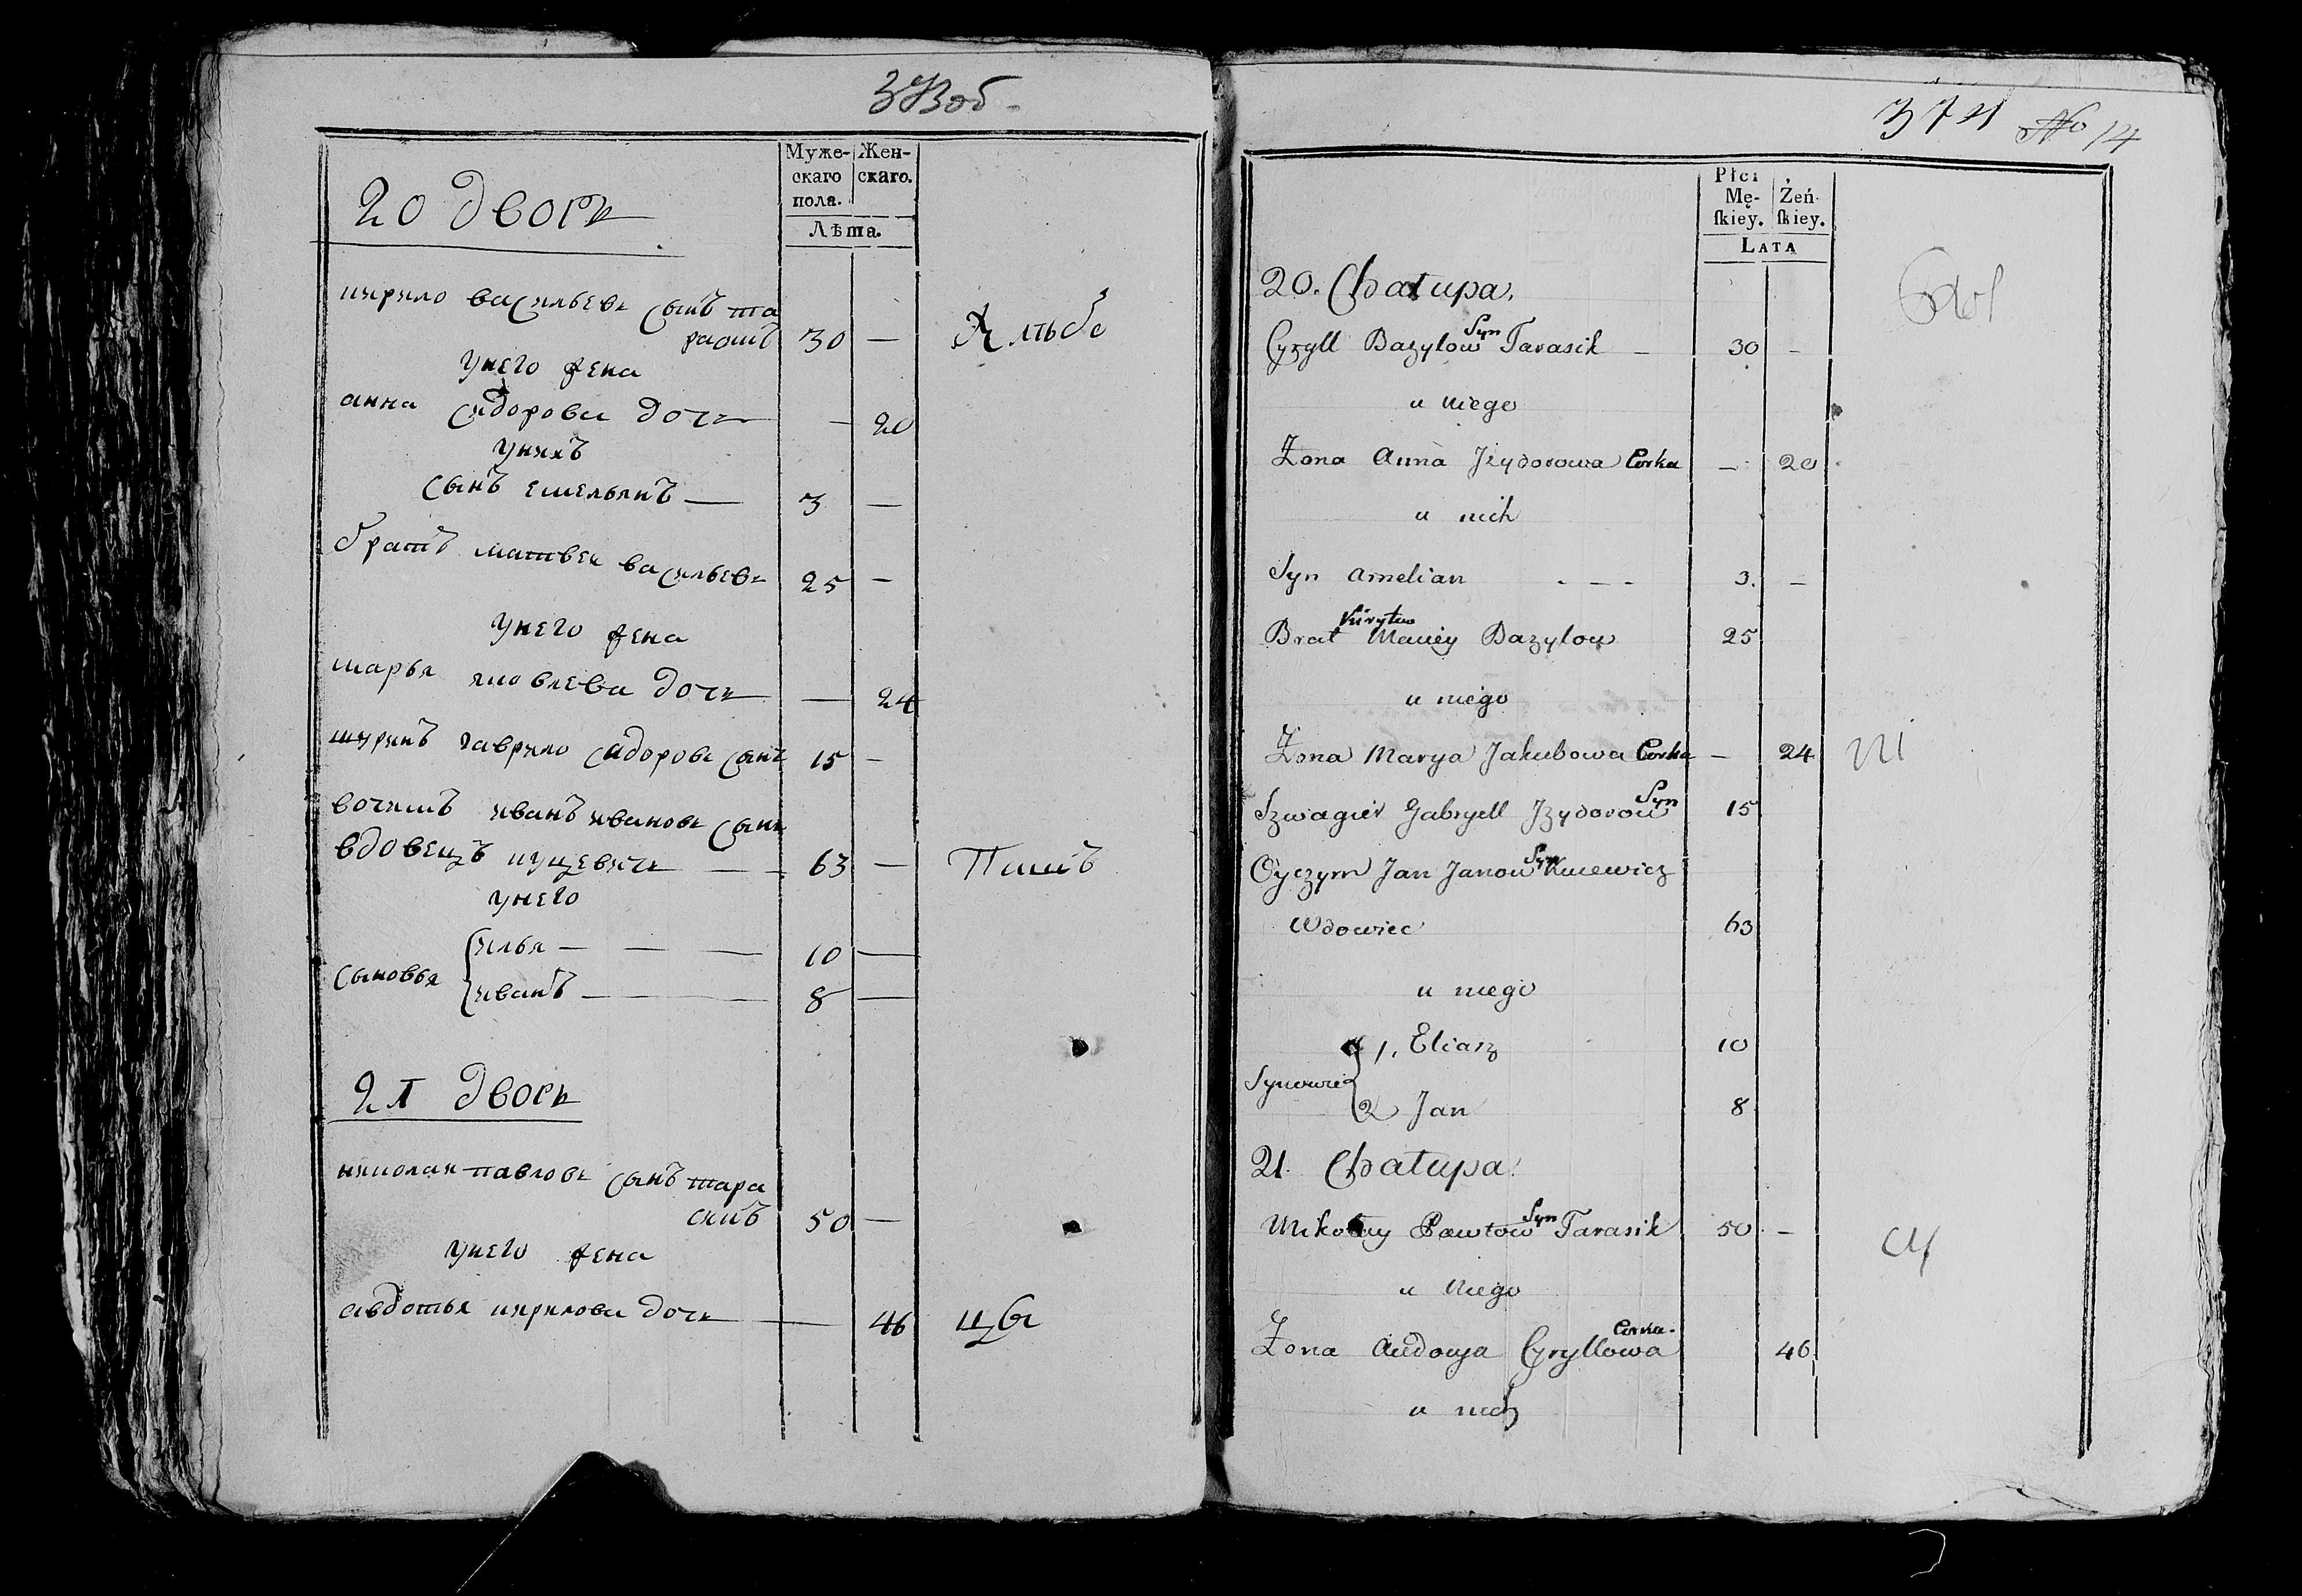 373 об
Муже-
скаго
пола.
Жен-
скаго.
Лѣта.
20 дворъ
кирило васильевъ сынъ та
расикъ 30 —
у него жена
анна сидорова дочь — 20
у нихъ
сынъ емельянъ — 3 —
братъ матвеи васильевъ 25 —
у него жена
марья яковлева дочь — 24
шуринъ гаврило сидоровъ сынъ 15 —
вотчимъ иванъ ивановъ сынъ
вдовецъ куцевичъ — — 63 —
у него
сыновья
илья — — — 10 —
иванъ — — 8 —
21 дворъ
николаи павловъ сынъ тара
сикъ 50 —
у него жена
авдотья кирилова дочь — 46
374 No 14
Płci
Mę-
ſkiey.
Żeń-
ſkiey.
LATA
20. Chałupa.
Cyryll Bazylow Syn Tarasik — 30 —
u niego
Żona Anna Jzydorowa Corka — 20
u nich
Syn Amelian - - - 3. —
Brat Maciey Bazylow 25
u niego
Żona Marya Jakubowa Corka — 24
Szwagier Gabryell Jzydorow Syn 15
Oyczym Jan Janow Syn Kucewicz
Wdowiec 63
u niego
Synowie
1. Eliasz 10
2 Jan 8
21. Chałupa.
Mikołay Pawłow Syn Tarasik 50 —
u niego
Żona Audocya Cyryllowa Corka 46
u nich